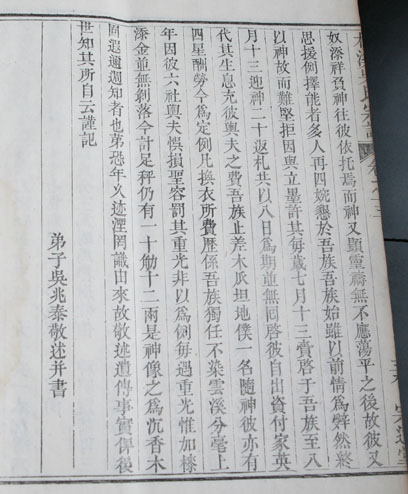 奴添祥負神往彼依托焉而神又顯靈禱無不應蕩平之後故彼又
思援例擇能者多人再四婉懇於吾族吾族始雖以前情爲辭然終
以神故而難堅拒因與立墨許其每歲七月十三賣啓于吾族至八
月十三迎神二十返札共以八日爲期並無同啓彼自出資付家英
代其生息充彼輿夫之費吾族止差木瓜坦地僕一名隨神彼亦有
四星酬勞今爲定例凡換衣所費歷係吾族獨任不染雲溪分毫上
年因彼六社輿夫悞損聖容罰其重光非以爲例每遇重光惟加㯶
添金並無剝落今計足秤仍有一十觔十二兩是神像之爲沉香木
固遐邇週知者也第恐年久迹湮罔識由來故敬述遺傳事實俾後
世知其所自云謹記
弟子吳兆泰敬述并書